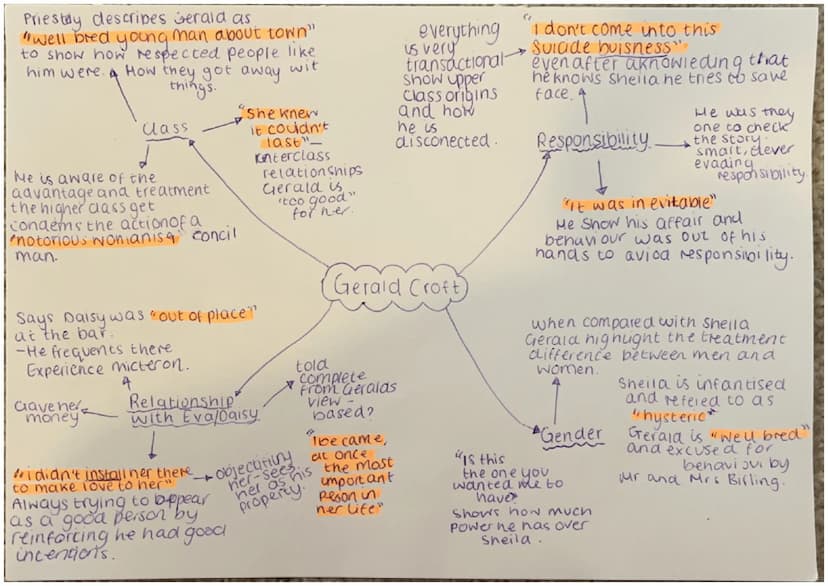 Priestly describes Gerald as
"well bred young man about town"
to show how respected people like
him were. How they got away wit
things.
Class
"She knew
it couldn't
last" –
interclass
relationships
Gerald is
"too good"
for her.
He is aware of the
advantage and treatment
the higher class get
condems the action of a
"notorious womaniser" concil
man.
everything
is very
transactional
show upper
class origins
and how
he is
disconected.
"I don't come into this
suicide buisness"
even after aknowleding that
he knows Sheila he tries to save
face.
Responsibility
He was they
one to check
the story.
smart, clever
evading
responsibility.
"It was inevitable"
He show his affair and
behaviour was out of his
hands to aviod responsibility.
Gerald Croft
Says Daisy was "out of place"
at the bar.
– He frequents there
Experience micteron.
Gave her
money
Relationship
with Eva/Daisy
told
complete
from Geralds
view –
based?
"i didn't install her there
to make love to her"
Always trying to appear
as a good person by
reinforcing he had good
intentions.
objectifying
her – sees
her as his
property.
"I became,
at once
the most
important
person in
her life"
Gender
when compared with Sheila
Gerald highlight the treatment
difference between men and
women.
Sheila is infantised
and refered to as
"hysteric"
Gerald is "Well bred"
and excused for
behaviour by
Mr and Mrs Birling.
"Is this
the one you
wanted me to
have"
shows how much
power he has over
Sheila.